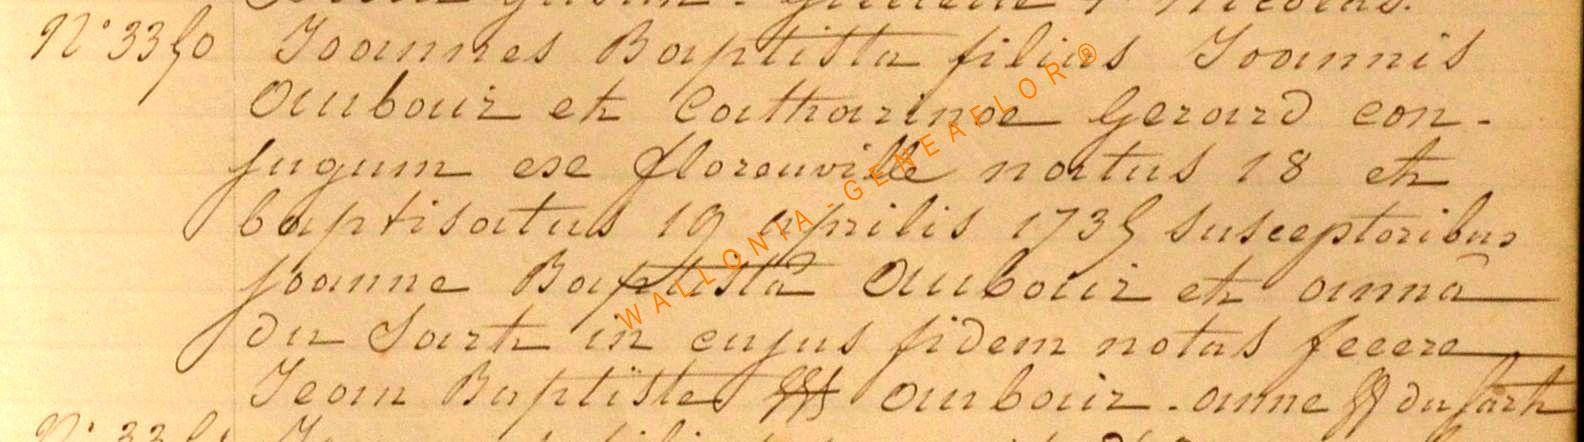 Nicolas.
N° 3350 Joannes Baptista filius Joannis
Aubouir et Catharinae Gerard con-
jugum ex florenville natus 18 et
baptisatus 19 aprilis 1735 susceptoribus
joanne Baptistâ Aubouir et annâ
du Sart in cujus fidem notas fecere
Jean Baptiste Aubouir - anne du sart
WALLONIA-GENEAFLOR®